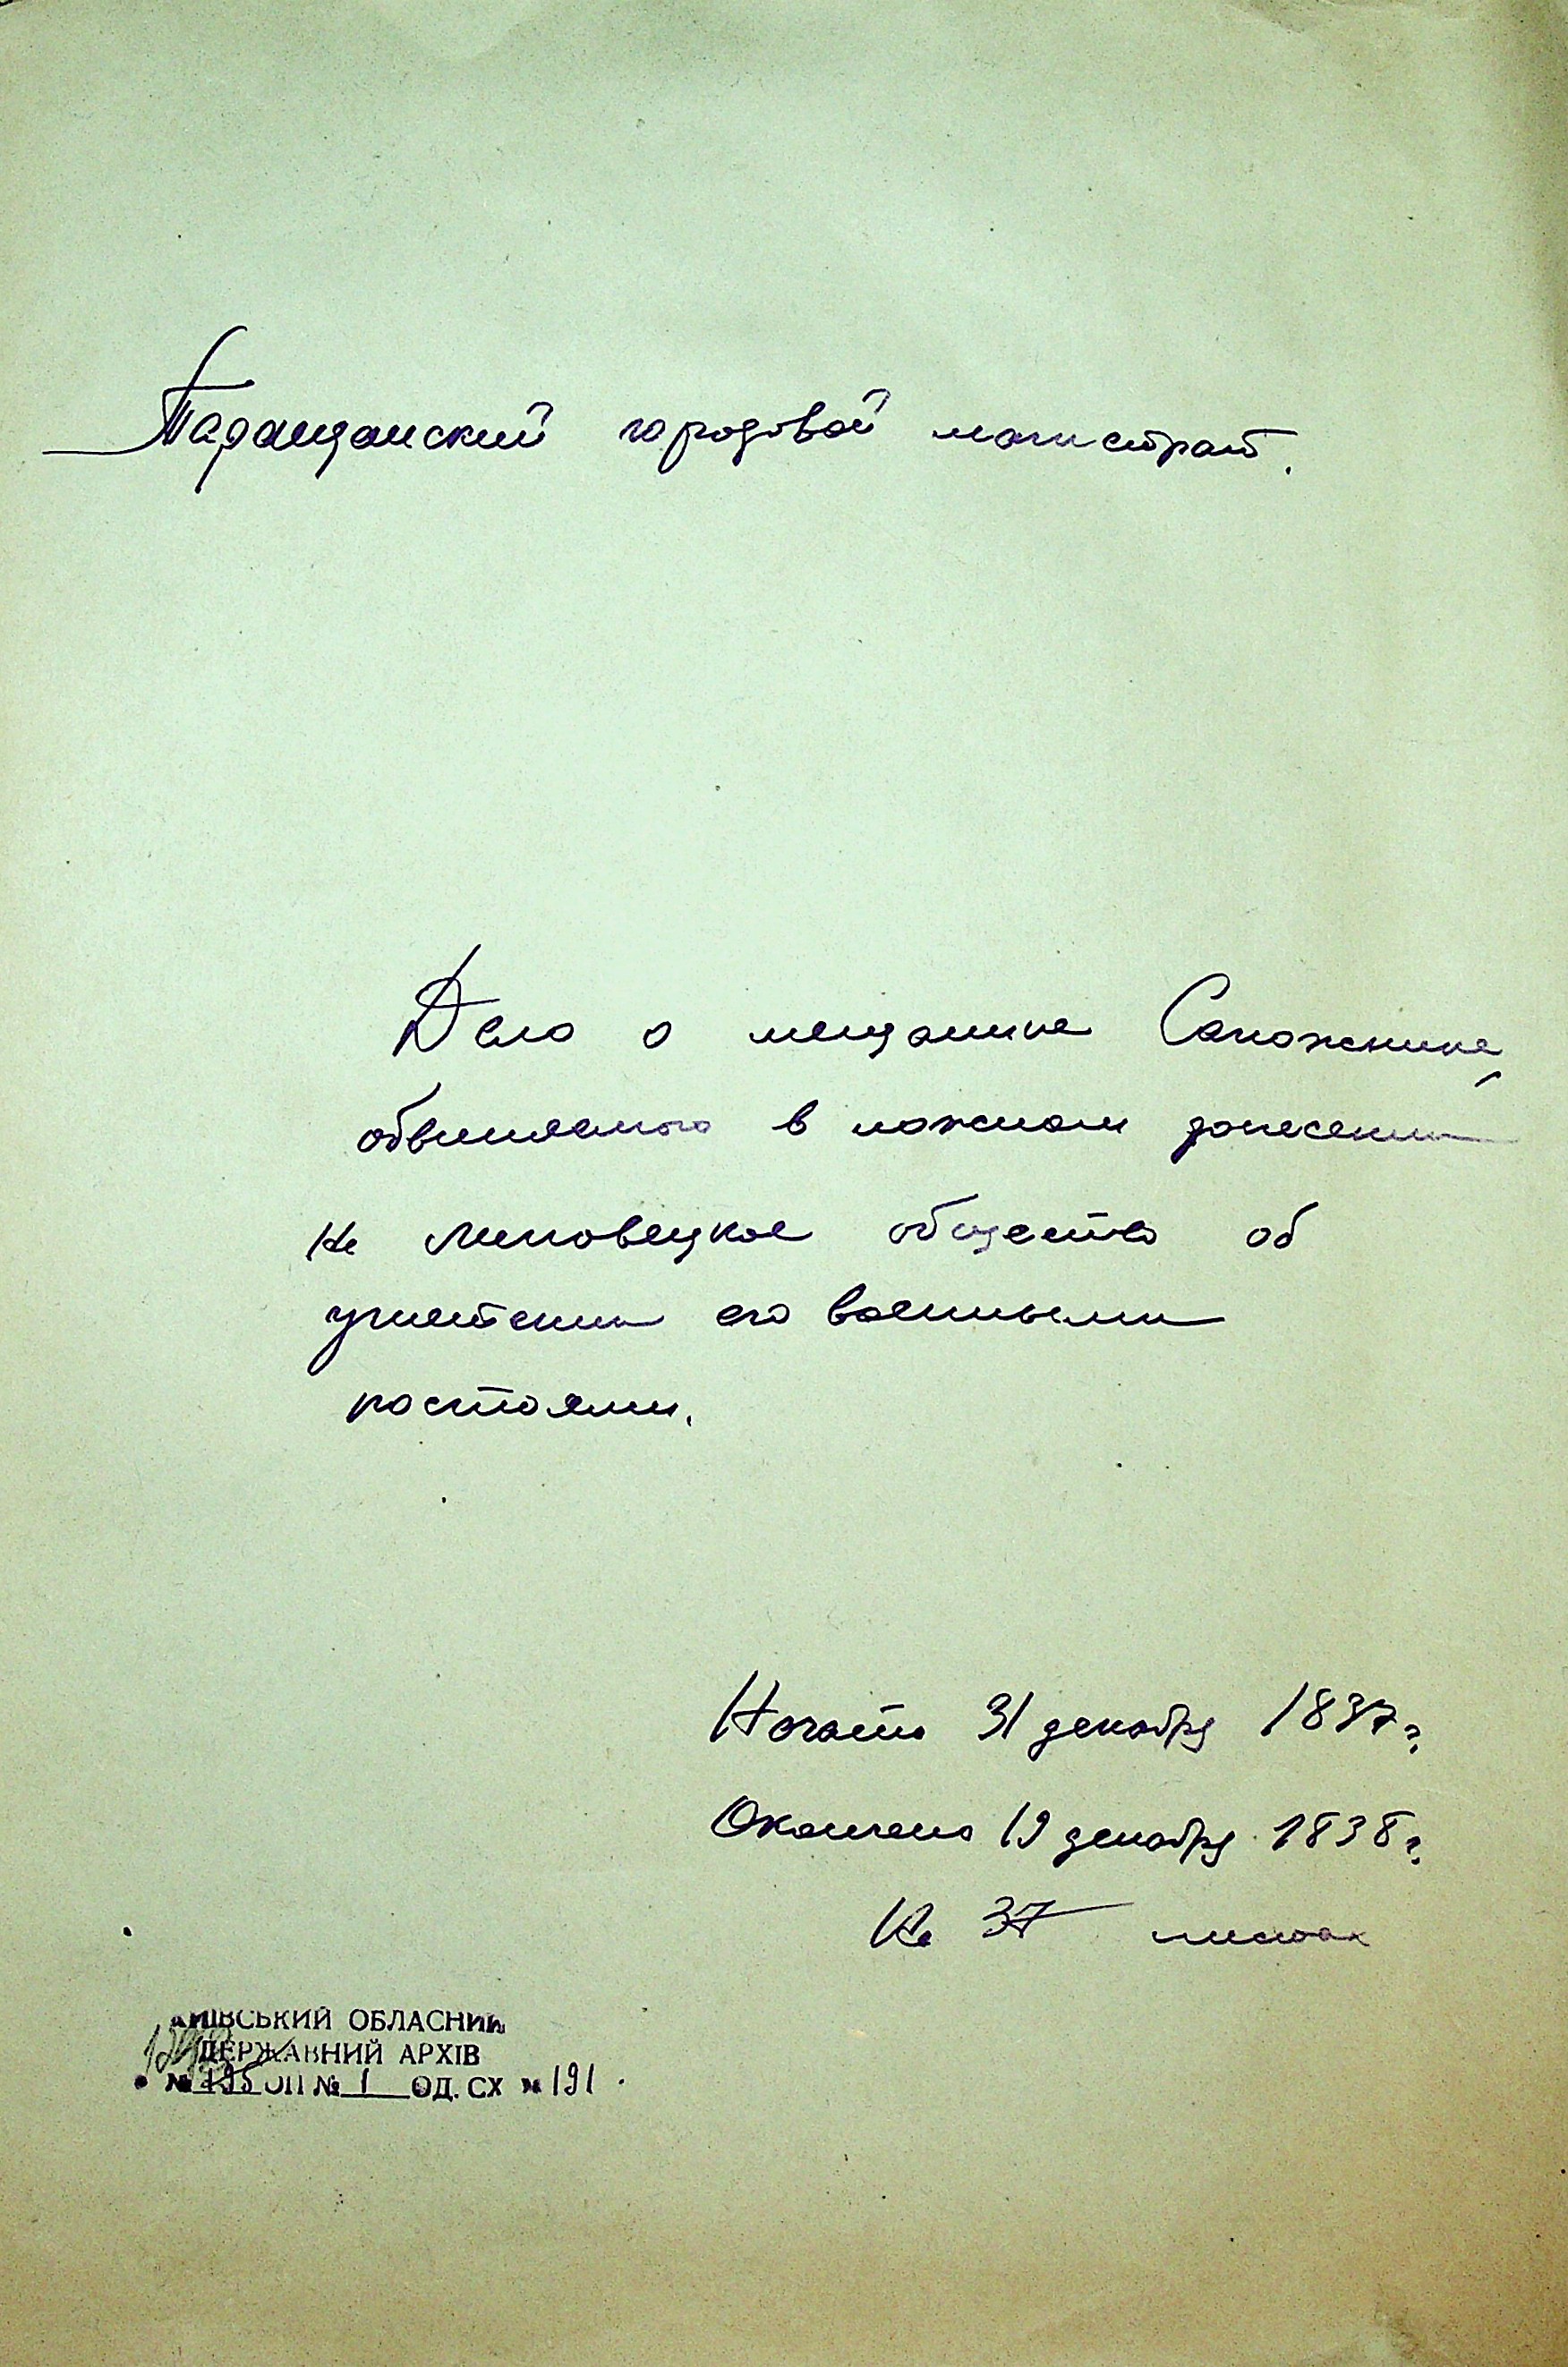 Таращанский городовой магистрат.
Дело о мещанине Сапожнике,
обвиняемого в ложном донесении
на Липовецкое общество об
угнетении его военными
постоями.
Начато 31 декабря 1837 г.
Окончено 19 декабря 1838 г.
На 37 листах
КИЇВСЬКИЙ ОБЛАСНИЙ
ДЕРЖАВНИЙ АРХІВ
№ 195 ОП № 1 ОД. СХ № 191